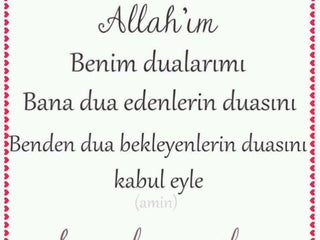 Allah'ım
Benim dualarımı
Bana dua edenlerin duasını
Benden dua bekleyenlerin duasını
kabul eyle
(amin)